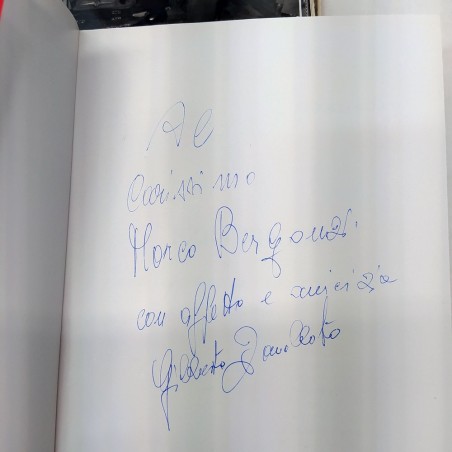 Al
carissimo
Marco Bergonzi
con affetto e amicizia
Gilberto